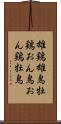 雄鶏雄鳥牡
鶏おん鳥お
ん鶏牡鳥